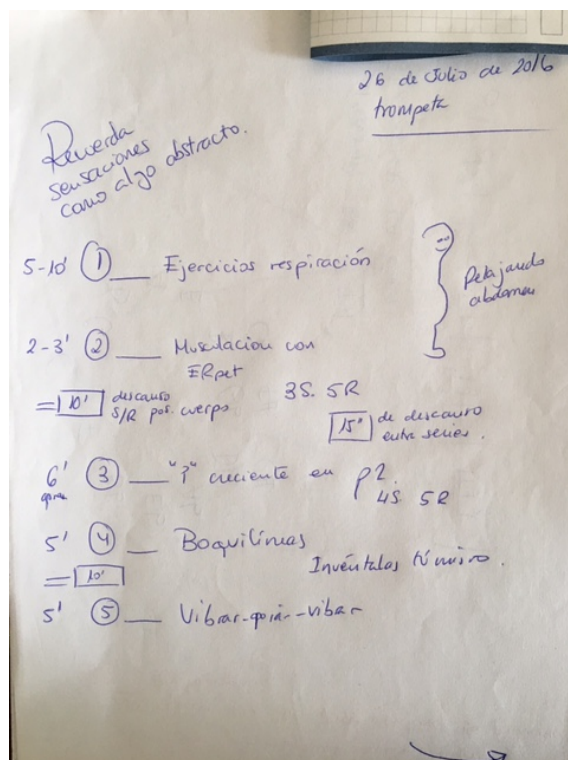 26 de Julio de 2016
trompeta
Recuerda
sensaciones
como algo abstracto.
5-10' ① Ejercicios respiración
Relajando
abdomen
2-3' ② Musculacion con
ERpet
3S. 5R
=10' descanso
S/R pos. cuerpo
15" de descanso
entre series.
6' ③ creciente en p2.
4S. 5R
5' ④ Boquilíneas
Invéntalas tú mismo.
=10'
5' ⑤ Vibrar